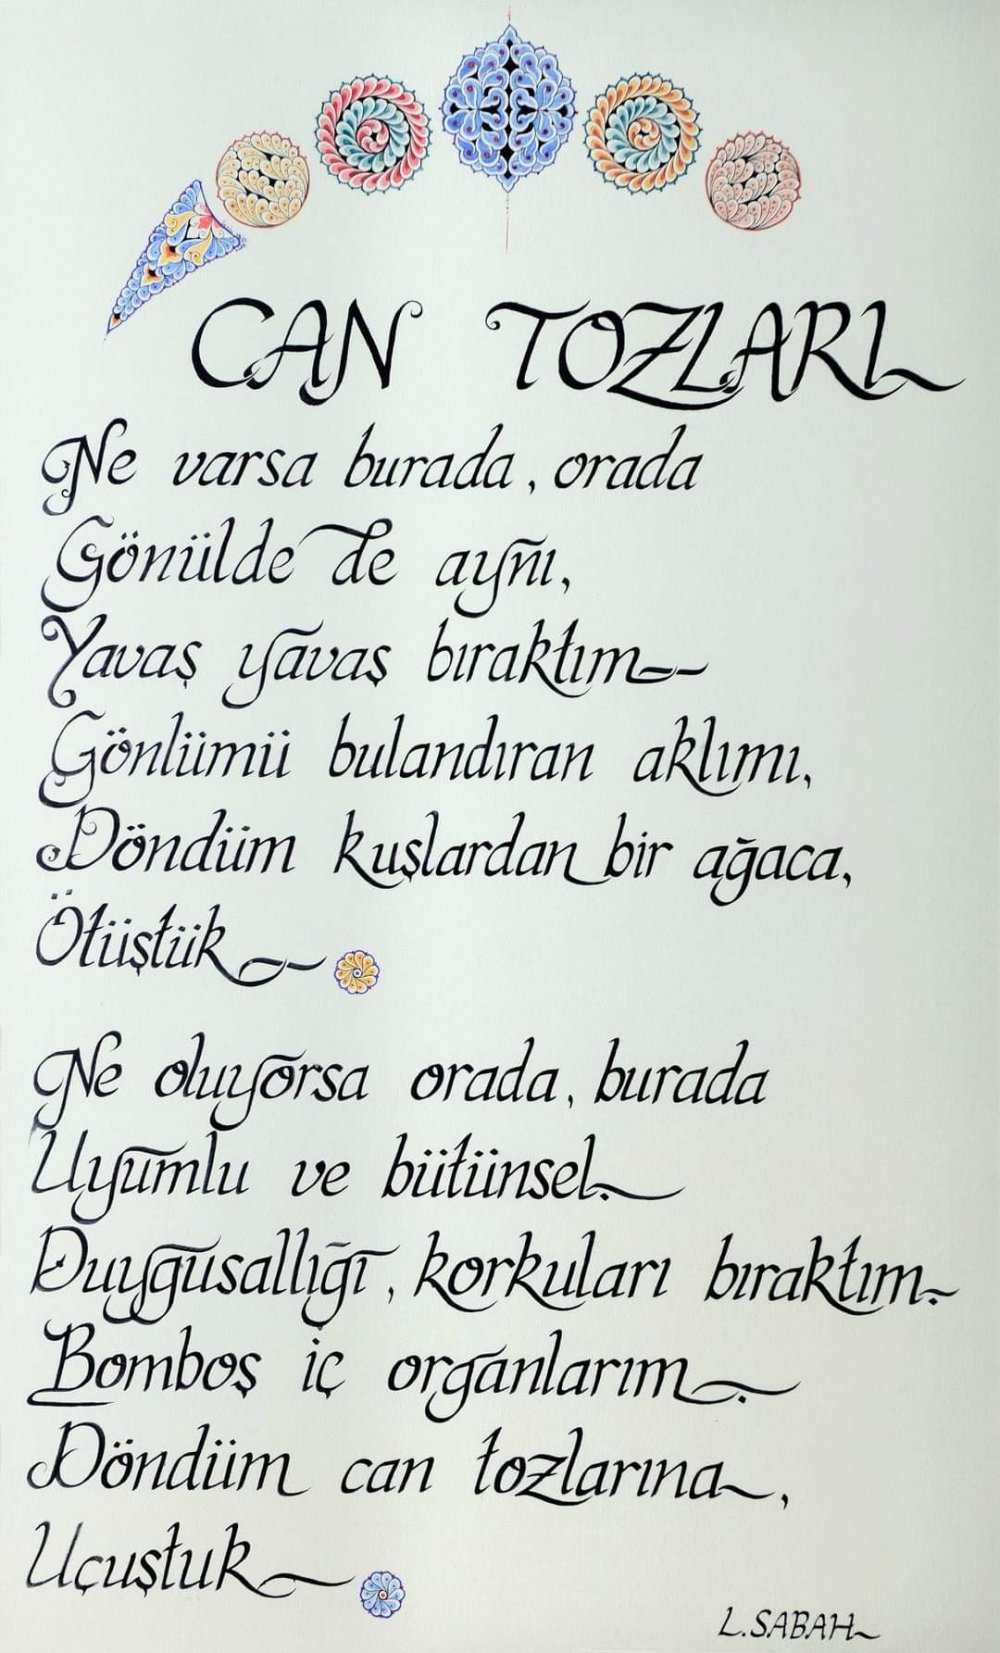 CAN TOZLARI
Ne varsa burada, orada
Gönülde de aynı,
Yavaş yavaş bıraktım
Gönlümü bulandıran aklımı,
Döndüm kuşlardan bir ağaca,
Ötüştük
Ne oluyorsa orada, burada
Uyumlu ve bütünsel.
Duygusallığı, korkuları bıraktım.
Bomboş iç organlarım.
Döndüm can tozlarına,
Uçuştuk
L.SABAH